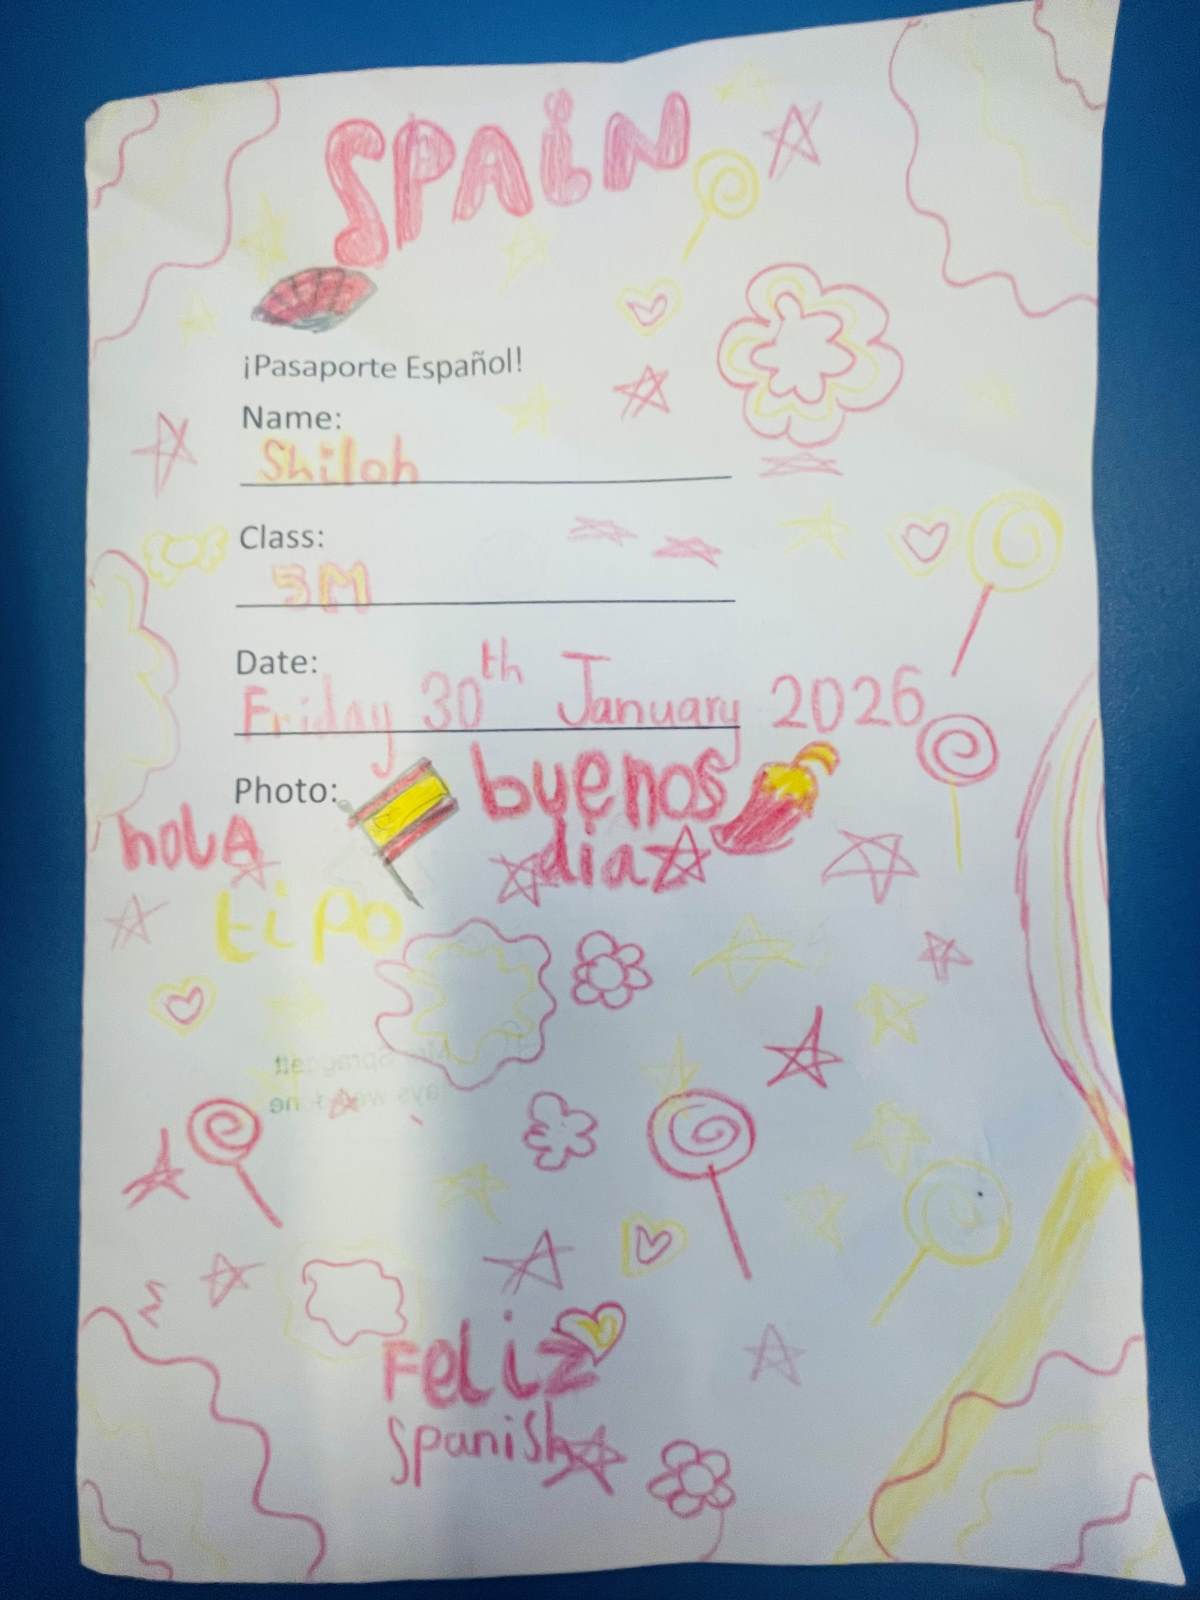 SPAiN
¡Pasaporte Español!
Name:
Shiloh
Class:
5M
Date:
Friday 30th January 2026
Photo:
buenos
hola
diaz
tipo
Feliz
Spanish